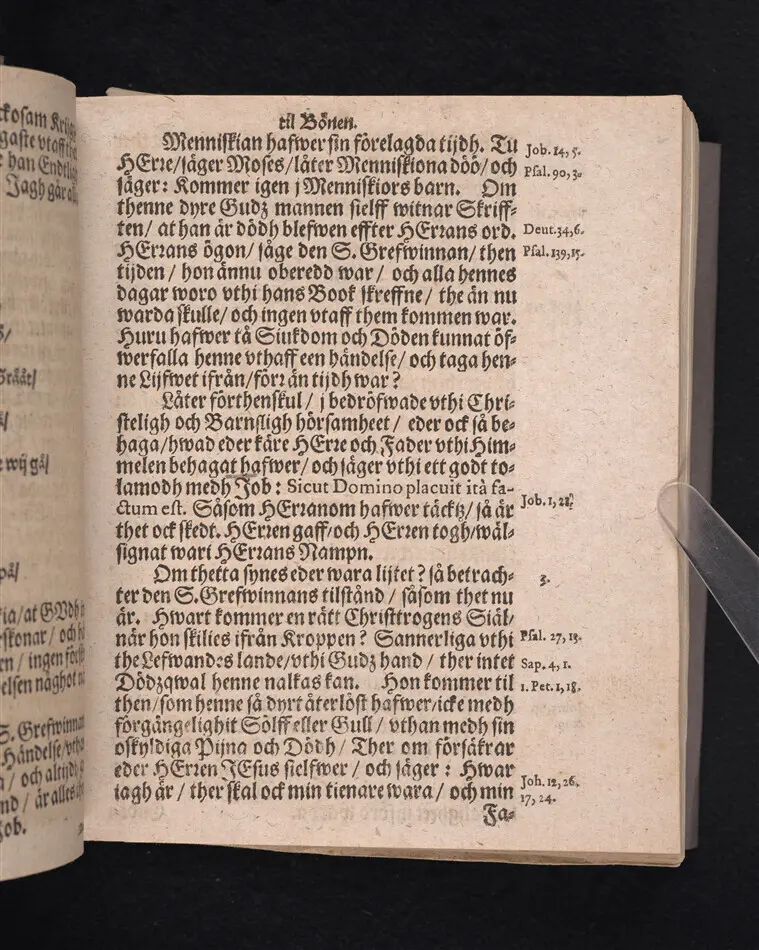 til Bönen.
Menniskian hafwer sin förelagda tijdh. Tu
HErre/säger Moses/låter Menniskiona döö/och
säger: Kommer igen j Menniskiors barn. Om
thenne dyre Gudz mannen sielff witnar Skriff-
ten/ at han är dödh blefwen effter HErrans ord.
HErrans ögon/ såge den S. Grefwinnan/ then
tijden/ hon ännu oberedd war/ och alla hennes
dagar woro vthi hans Book skreffne/ the än nu
warda skulle/ och ingen vtaff them kommen war.
Huru hafwer tå Siukdom och Döden kunnat öf-
werfalla henne vthaff een händelse/ och taga hen-
ne Lijfwet ifrån/förr än tijdh war?
Låter förthenskul/ j bedröfwade vthi Chri-
steligh och Barnsligh hörsamheet/ eder ock så be-
haga/hwad eder käre HErre och Fader vthi Him-
melen behagat hafwer/ och säger vthi ett godt to-
lamodh medh Job: Sicut Domino placuit ità fa-
ctum est. Såsom HErranom hafwer täcktz/ så är
thet ock skedt. HErren gaff/och HErren togh/wäl-
signat wari HErrans Nampn.
Om thetta synes eder wara lijtet? så betrach-
ter den S. Grefwinnans tilstånd/ såsom thet nu
är. Hwart kommer en rätt Christtrogens Siäl/
när hon skilies ifrån Kroppen? Sannerliga vthi
the Lefwandes lande/vthi Gudz hand/ ther intet
Dödzqwal henne nalkas kan. Hon kommer til
then/som henne så dyrt återlöst hafwer/icke medh
förgängelighit Sölff eller Gull/ vthan medh sin
oskyldiga Pijna och Dödh/ Ther om försäkrar
eder HErren JEsus sielfwer/ och säger: Hwar
iagh är/ ther skal ock min tienare wara/ och min
Fa-
Job. 14, 5.
Psal. 90, 3.
Deut. 34, 6.
Psal. 139, 15.
Job. 1, 21.
3.
Psal. 27, 13.
Sap. 4, 1.
1. Pet. 1, 18.
Joh. 12, 26.
17, 24.